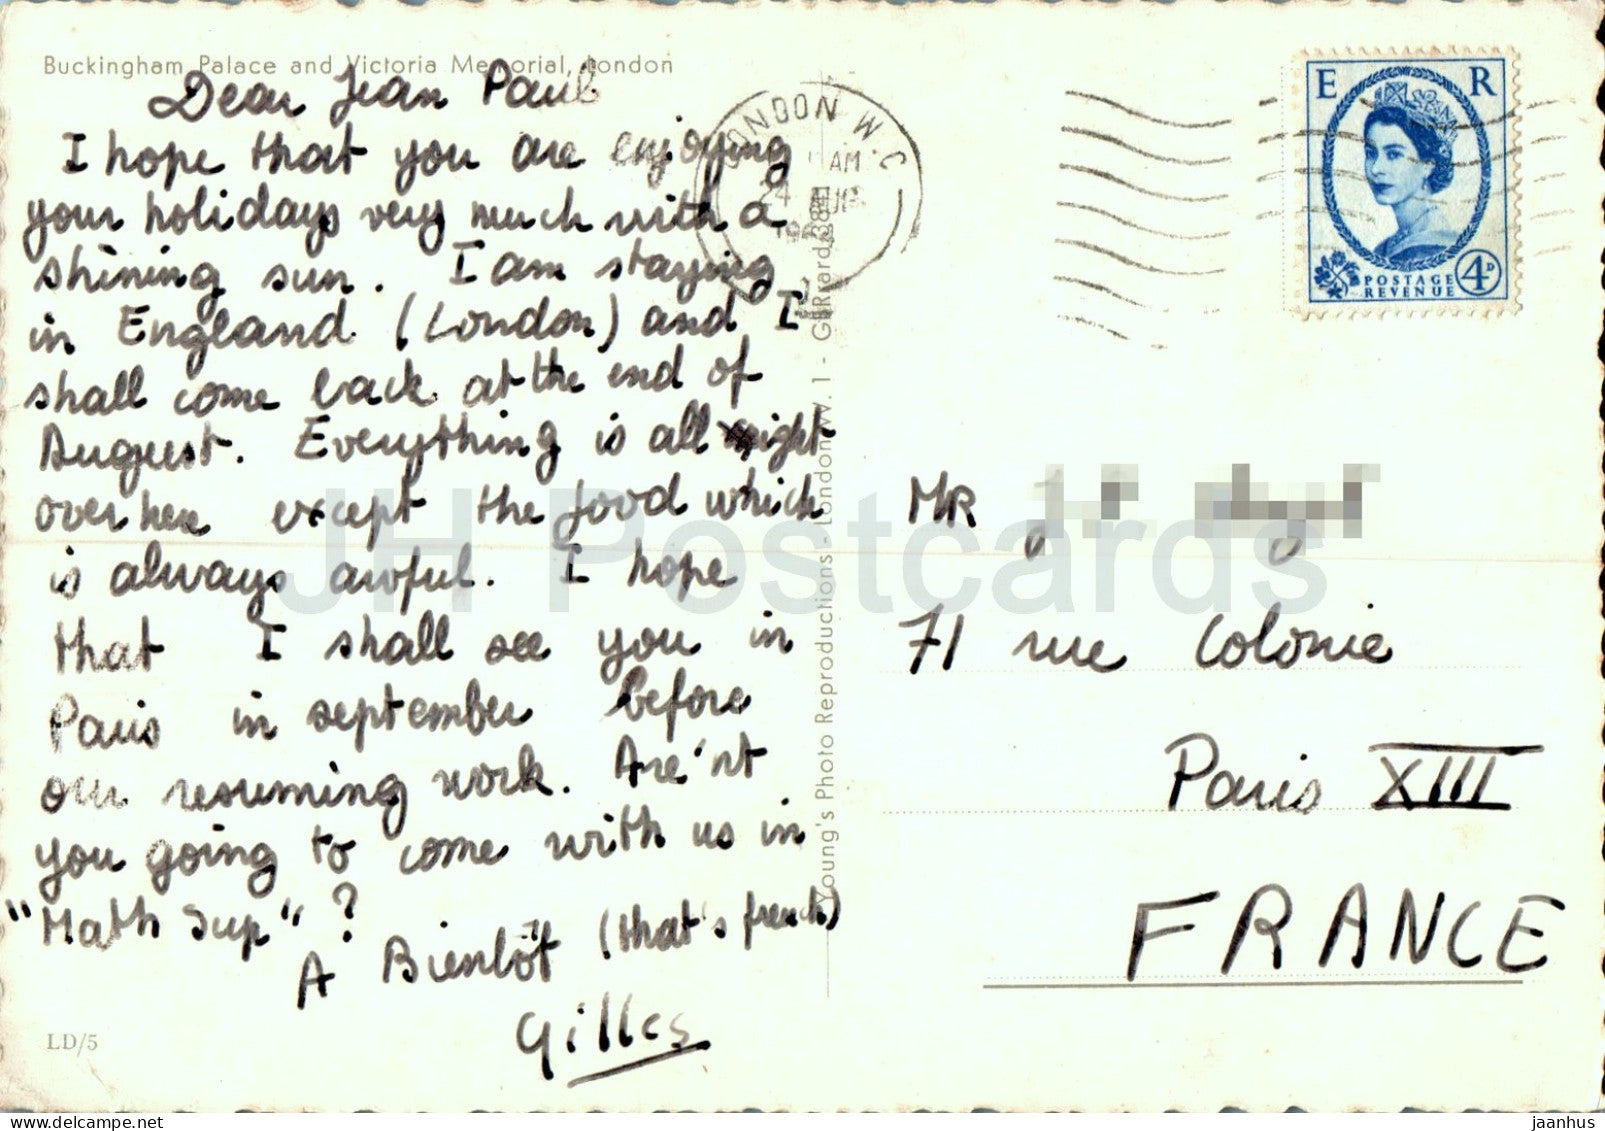 Buckingham Palace and Victoria Memorial, London
Dear Jean Paul
I hope that you are enjoying
your holidays very much with a
shining sun. I am staying
in England (London) and I
shall come back at the end of
August. Everything is all right
over here except the food which
is always awful. I hope
that I shall see you in
Paris in september before
our resuming work. Are'nt
you going to come with us in
"Math Sup" ?
A Bientôt (that's french)
Gilles
LD/5
Young's Photo Reproductions - London W. 1 -
LONDON W.C
AM
24 AUG
E R
POSTAGE
REVENUE
4D
MR
71 rue Colonie
Paris XIII
FRANCE
JH Postcards
jaanhus